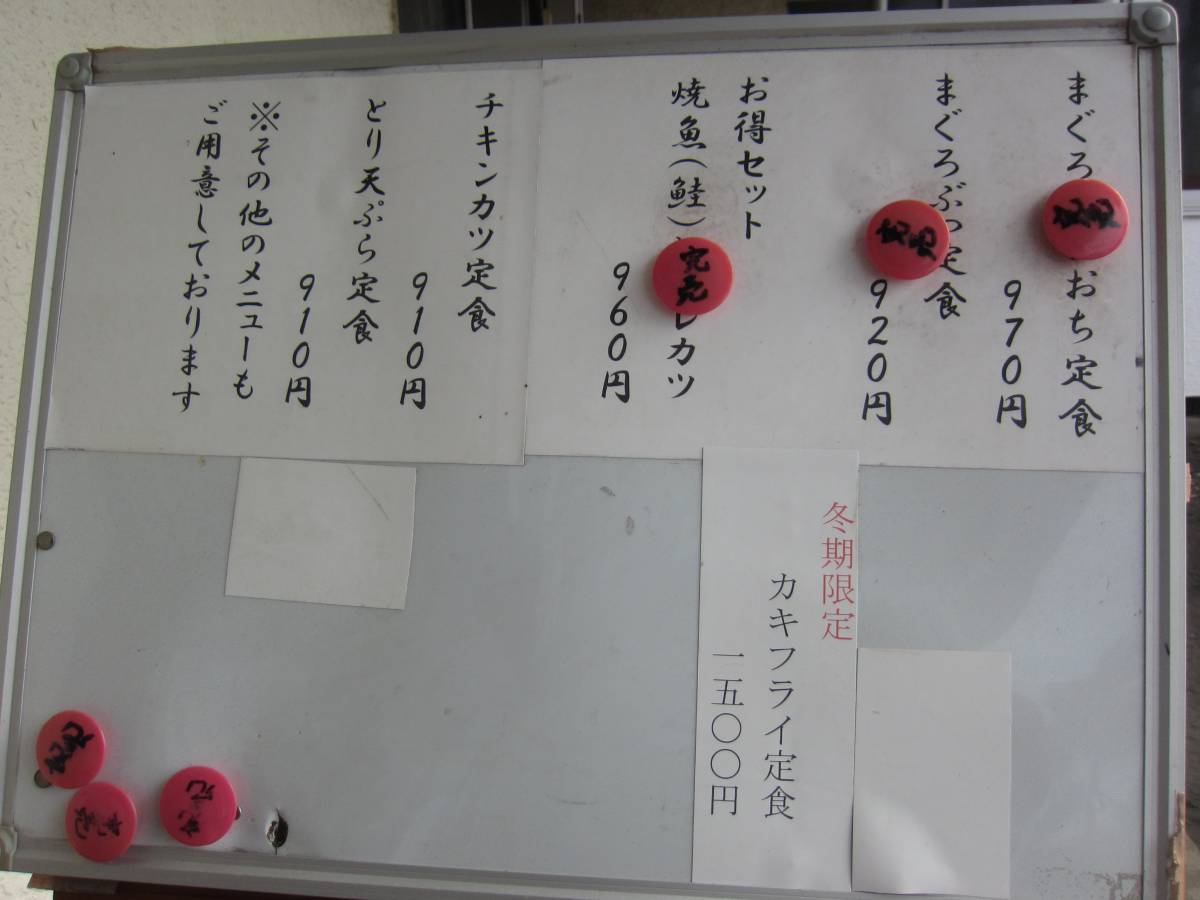 まぐろ おち定食
970円
まぐろぶつ定食
920円
お得セット
焼魚(鮭) レカツ
960円
チキンカツ定食
910円
とり天ぷら定食
910円
※その他のメニューも
ご用意しております
冬期限定
カキフライ定食
一五〇〇円
完売